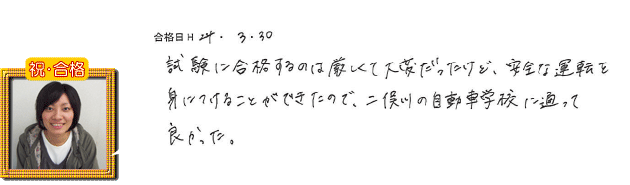 合格日 H 24. 3.30
祝・合格
試験に合格するのは厳しくて大変だったけど、安全な運転を
身につけることができたので、二俣川の自動車学校に通って
良かった。